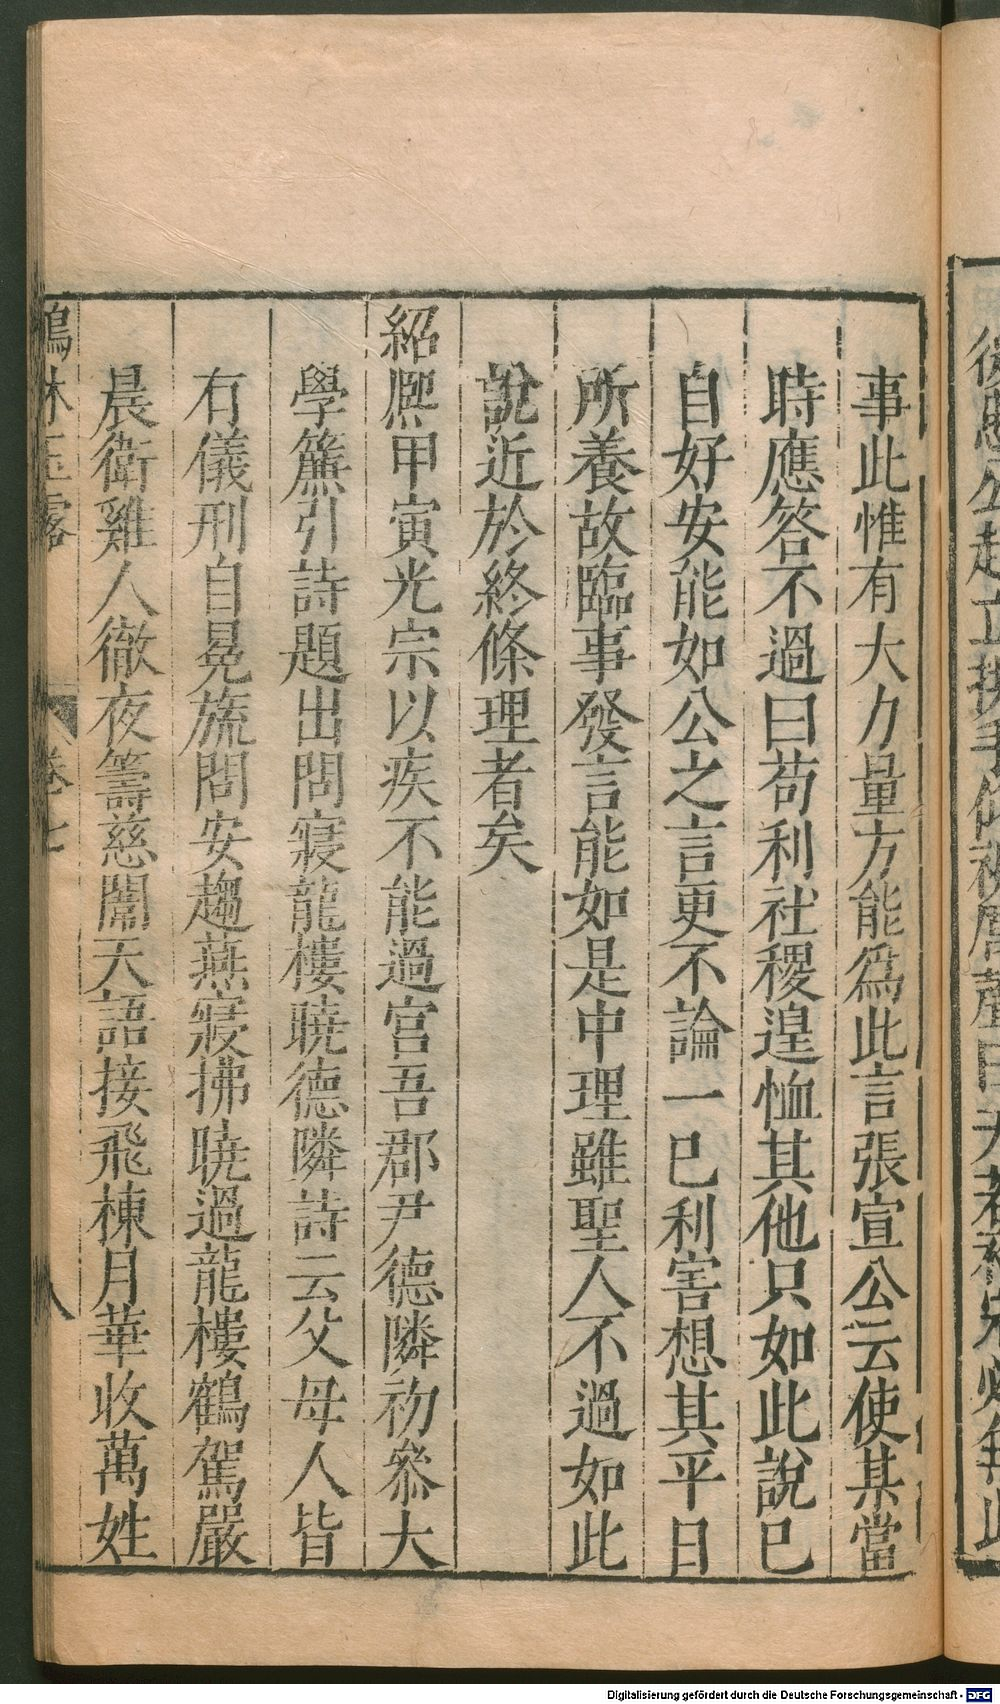 事此惟有大力量方能爲此言張宣公云使某當
時應答不過曰苟利社稷遑恤其他只如此說已
自好安能如公之言更不論一已利害想其平日
所養故臨事發言能如是中理雖聖人不過如此
說近於終條理者矣
紹熈甲寅光宗以疾不能過宫吾郡尹德隣初叅大
學簾引詩題出問寢龍樓曉德隣詩云父母人皆
有儀刑自冕旒問安趨燕寢拂曉過龍樓鶴駕嚴
晨衛雞人徹夜籌慈闈天語接飛棟月華收萬姓
鶴林玉露
卷七
八
Digitalisierung gefördert durch die Deutsche Forschungsgemeinschaft - DFG